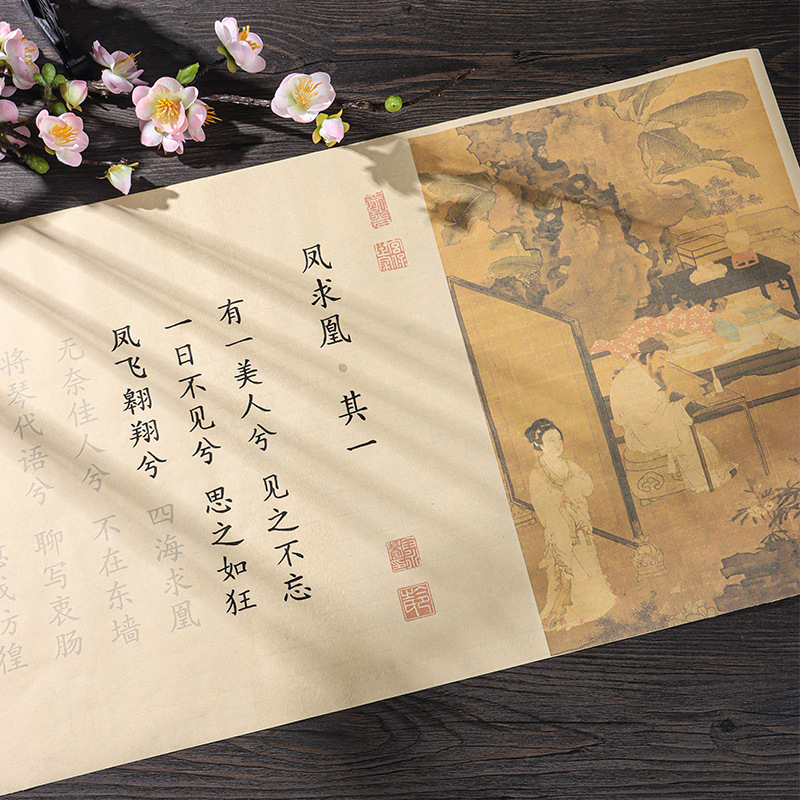 凤求凰·其一
有一美人兮 见之不忘
一日不见兮 思之如狂
凤飞翱翔兮 四海求凰
无奈佳人兮 不在东墙
将琴代语兮 聊写衷肠